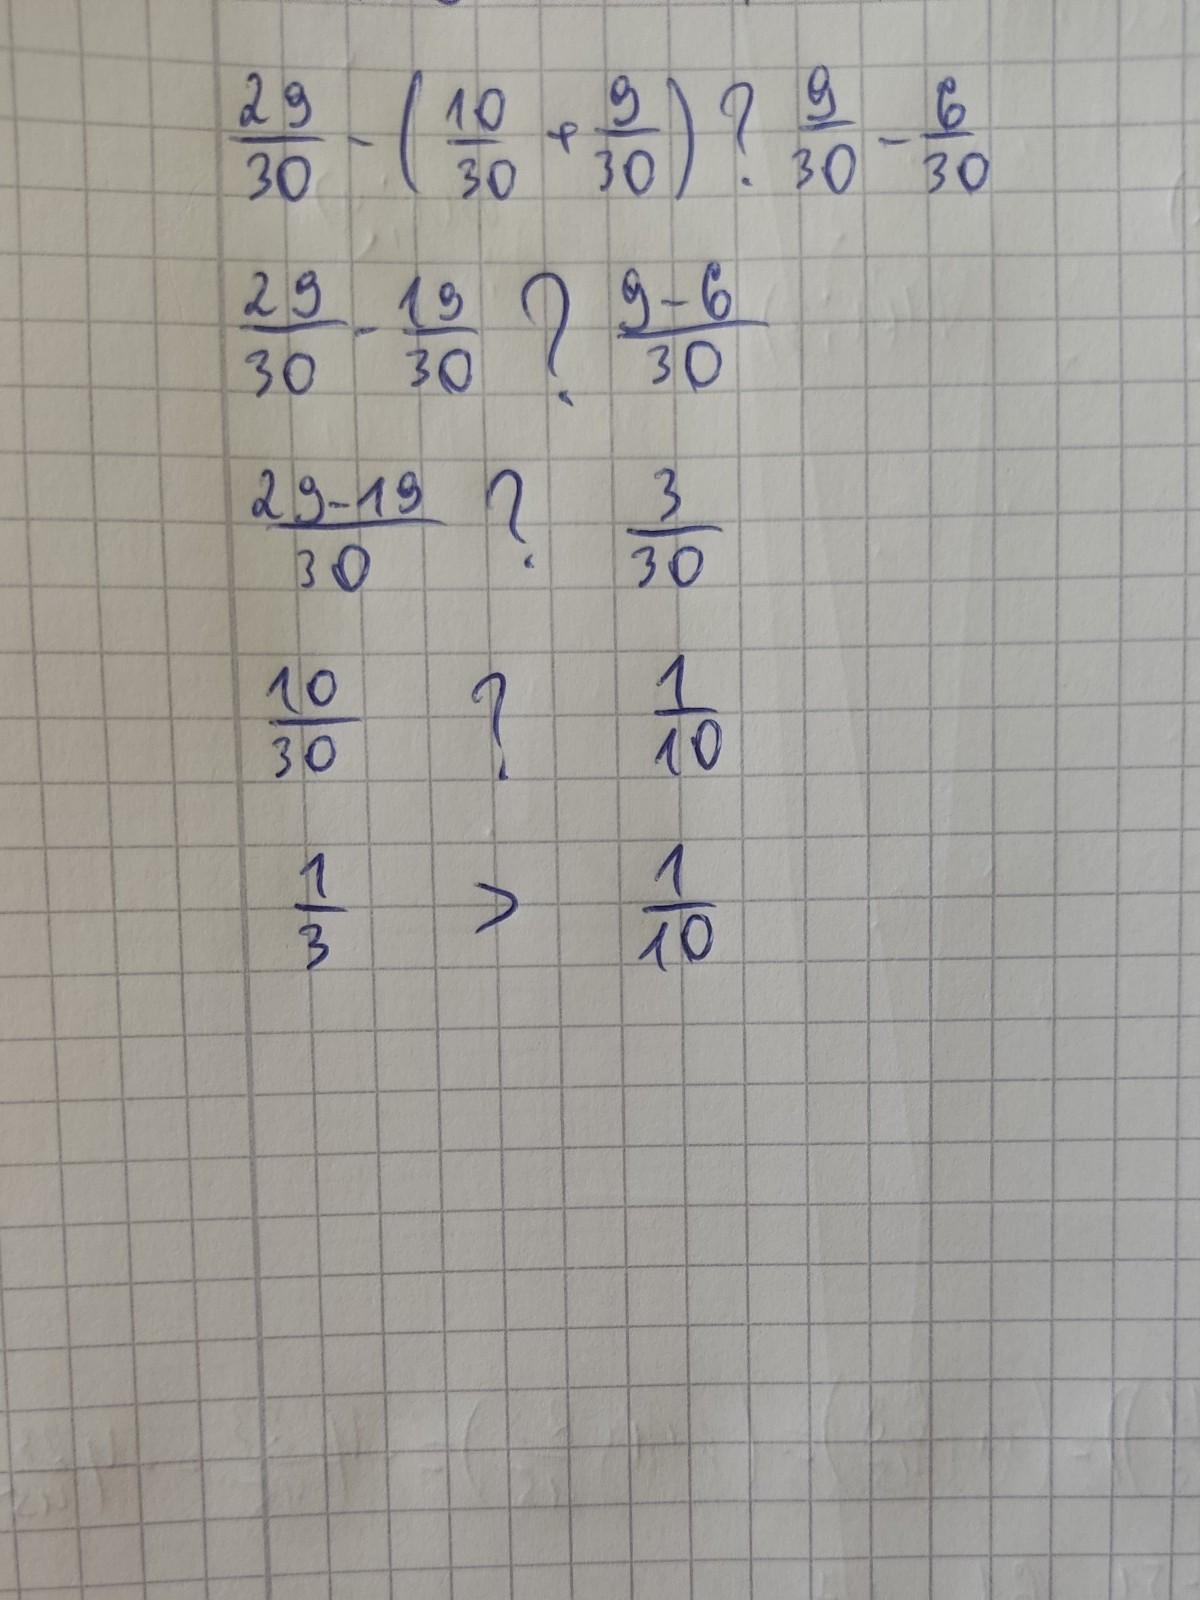 29/30 - (10/30 + 9/30) ? 9/30 - 6/30
29/30 - 19/30 ? 9-6/30
29-19/30 ? 3/30
10/30 ? 1/10
1/3 > 1/10